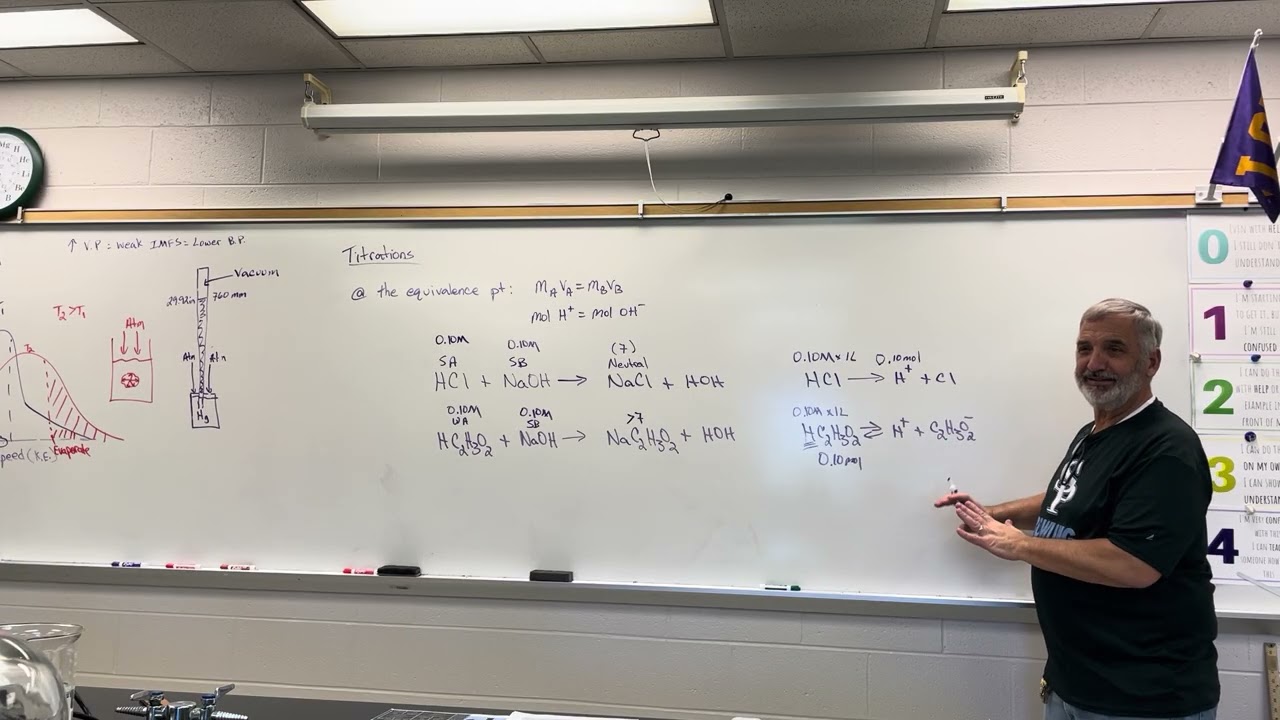 ↑ V.P. = Weak IMFS = Lower B.P.
Vacuum
29.92in 760 mm
T₂ > T₁
T₂
Atm
Atm Atm
Hg
Evaporate
peed (K.E.)
Titrations
@ the equivalence pt: M_A V_A = M_B V_B
mol H⁺ = mol OH⁻
0.10M 0.10M (7)
SA SB Neutral
HCl + NaOH → NaCl + HOH
0.10M 0.10M >7
WA SB
HC₂H₃O₂ + NaOH → NaC₂H₃O₂ + HOH
0.10M x 1L 0.10mol
HCl → H⁺ + Cl
0.10M x 1L
HC₂H₃O₂ ⇌ H⁺ + C₂H₃O₂⁻
0.10mol
0
EVEN WITH HELP
I STILL DON'T
UNDERSTAND
1
I'M STARTING
TO GET IT, BUT
I'M STILL
CONFUSED
2
I CAN DO TH
WITH HELP OR
EXAMPLE IN
FRONT OF M
3
I CAN DO TH
ON MY OWN
I CAN SHOW
UNDERSTAN
4
I'M VERY CONF
WITH THIS
I CAN TEAC
SOMEONE HOW
THIS